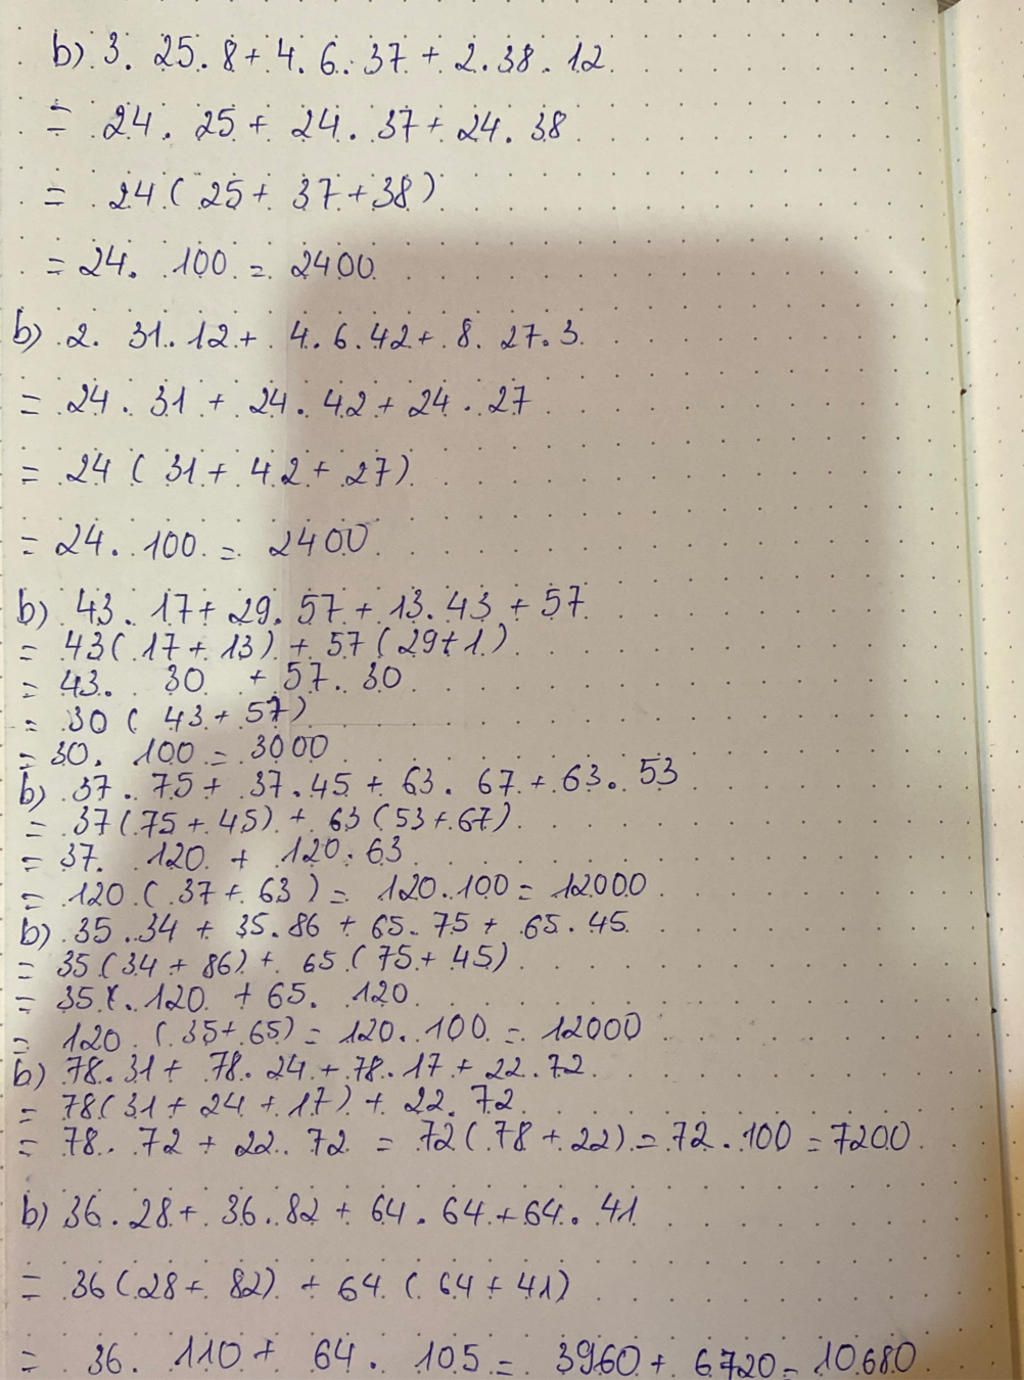 b) 3. 25. 8 + 4. 6. 37 + 2. 38. 12
= 24. 25 + 24. 37 + 24. 38
= 24 ( 25 + 37 + 38)
= 24. 100 = 2400
b) 2. 31. 12 + 4. 6. 42 + 8. 27. 3
= 24. 31 + 24. 42 + 24. 27
= 24 ( 31 + 42 + 27)
= 24. 100 = 2400
b) 43. 17 + 29. 57 + 13. 43 + 57
= 43 ( 17 + 13) + 57 ( 29 + 1)
= 43. 30 + 57. 30
= 30 ( 43 + 57)
= 30. 100 = 3000
b) 37. 75 + 37. 45 + 63. 67 + 63. 53
= 37 (75 + 45) + 63 (53 + 67)
= 37. 120 + 120. 63
= 120 ( 37 + 63 ) = 120. 100 = 12000
b) 35. 34 + 35. 86 + 65. 75 + 65. 45
= 35 (34 + 86) + 65 ( 75 + 45)
= 35. 120 + 65. 120
= 120 ( 35 + 65) = 120. 100 = 12000
b) 78. 31 + 78. 24 + 78. 17 + 22. 72
= 78 (31 + 24 + 17) + 22. 72
= 78. 72 + 22. 72 = 72 ( 78 + 22) = 72. 100 = 7200
b) 36. 28 + 36. 82 + 64. 64 + 64. 41
= 36 (28 + 82) + 64 ( 64 + 41)
= 36. 110 + 64. 105 = 3960 + 6720 = 10680